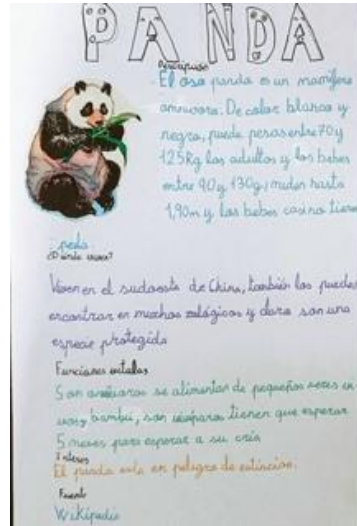 PANDA
Descripción
El oso panda es un mamífero
omnívoro. De color blanco y
negro, puede pesar entre 70 y
125Kg los adultos y los bebes
entre 90 y 130g, miden hasta
1,90m y los bebes casi no tiene
pelo.
¿Dónde viven?
Viven en el sudoeste de China, también los puedes
encontrar en muchos zoológicos y claro son una
especie protegida
Funciones vitales
Son omnívoros se alimentan de pequeños seres
bambú, son vivíparos tienen que esperar
5 meses para esperar a su cría
Interes
El panda esta en peligro de extincion.
Fuente
Wikipedia